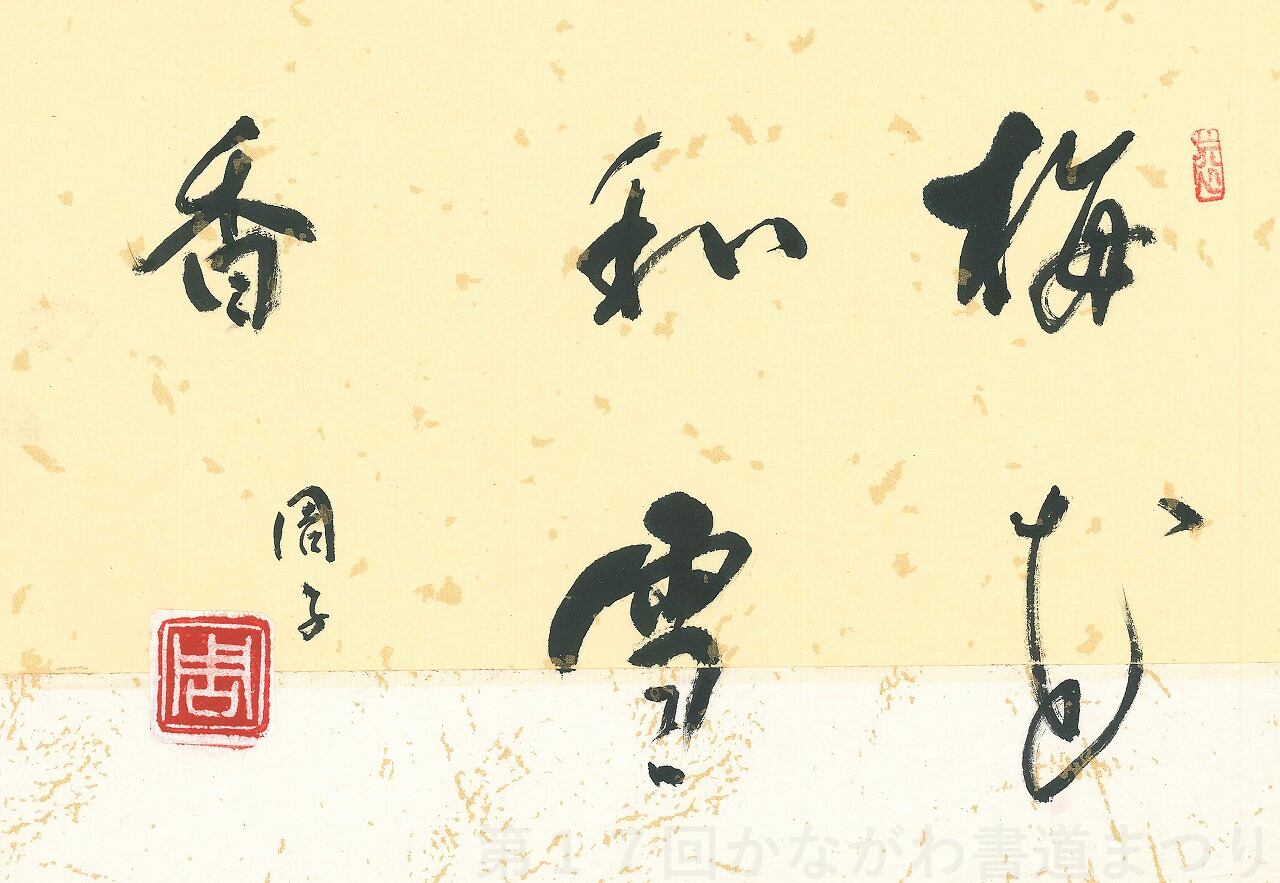 梅花
和雪
香
周子
周
第１７回かながわ書道まつり